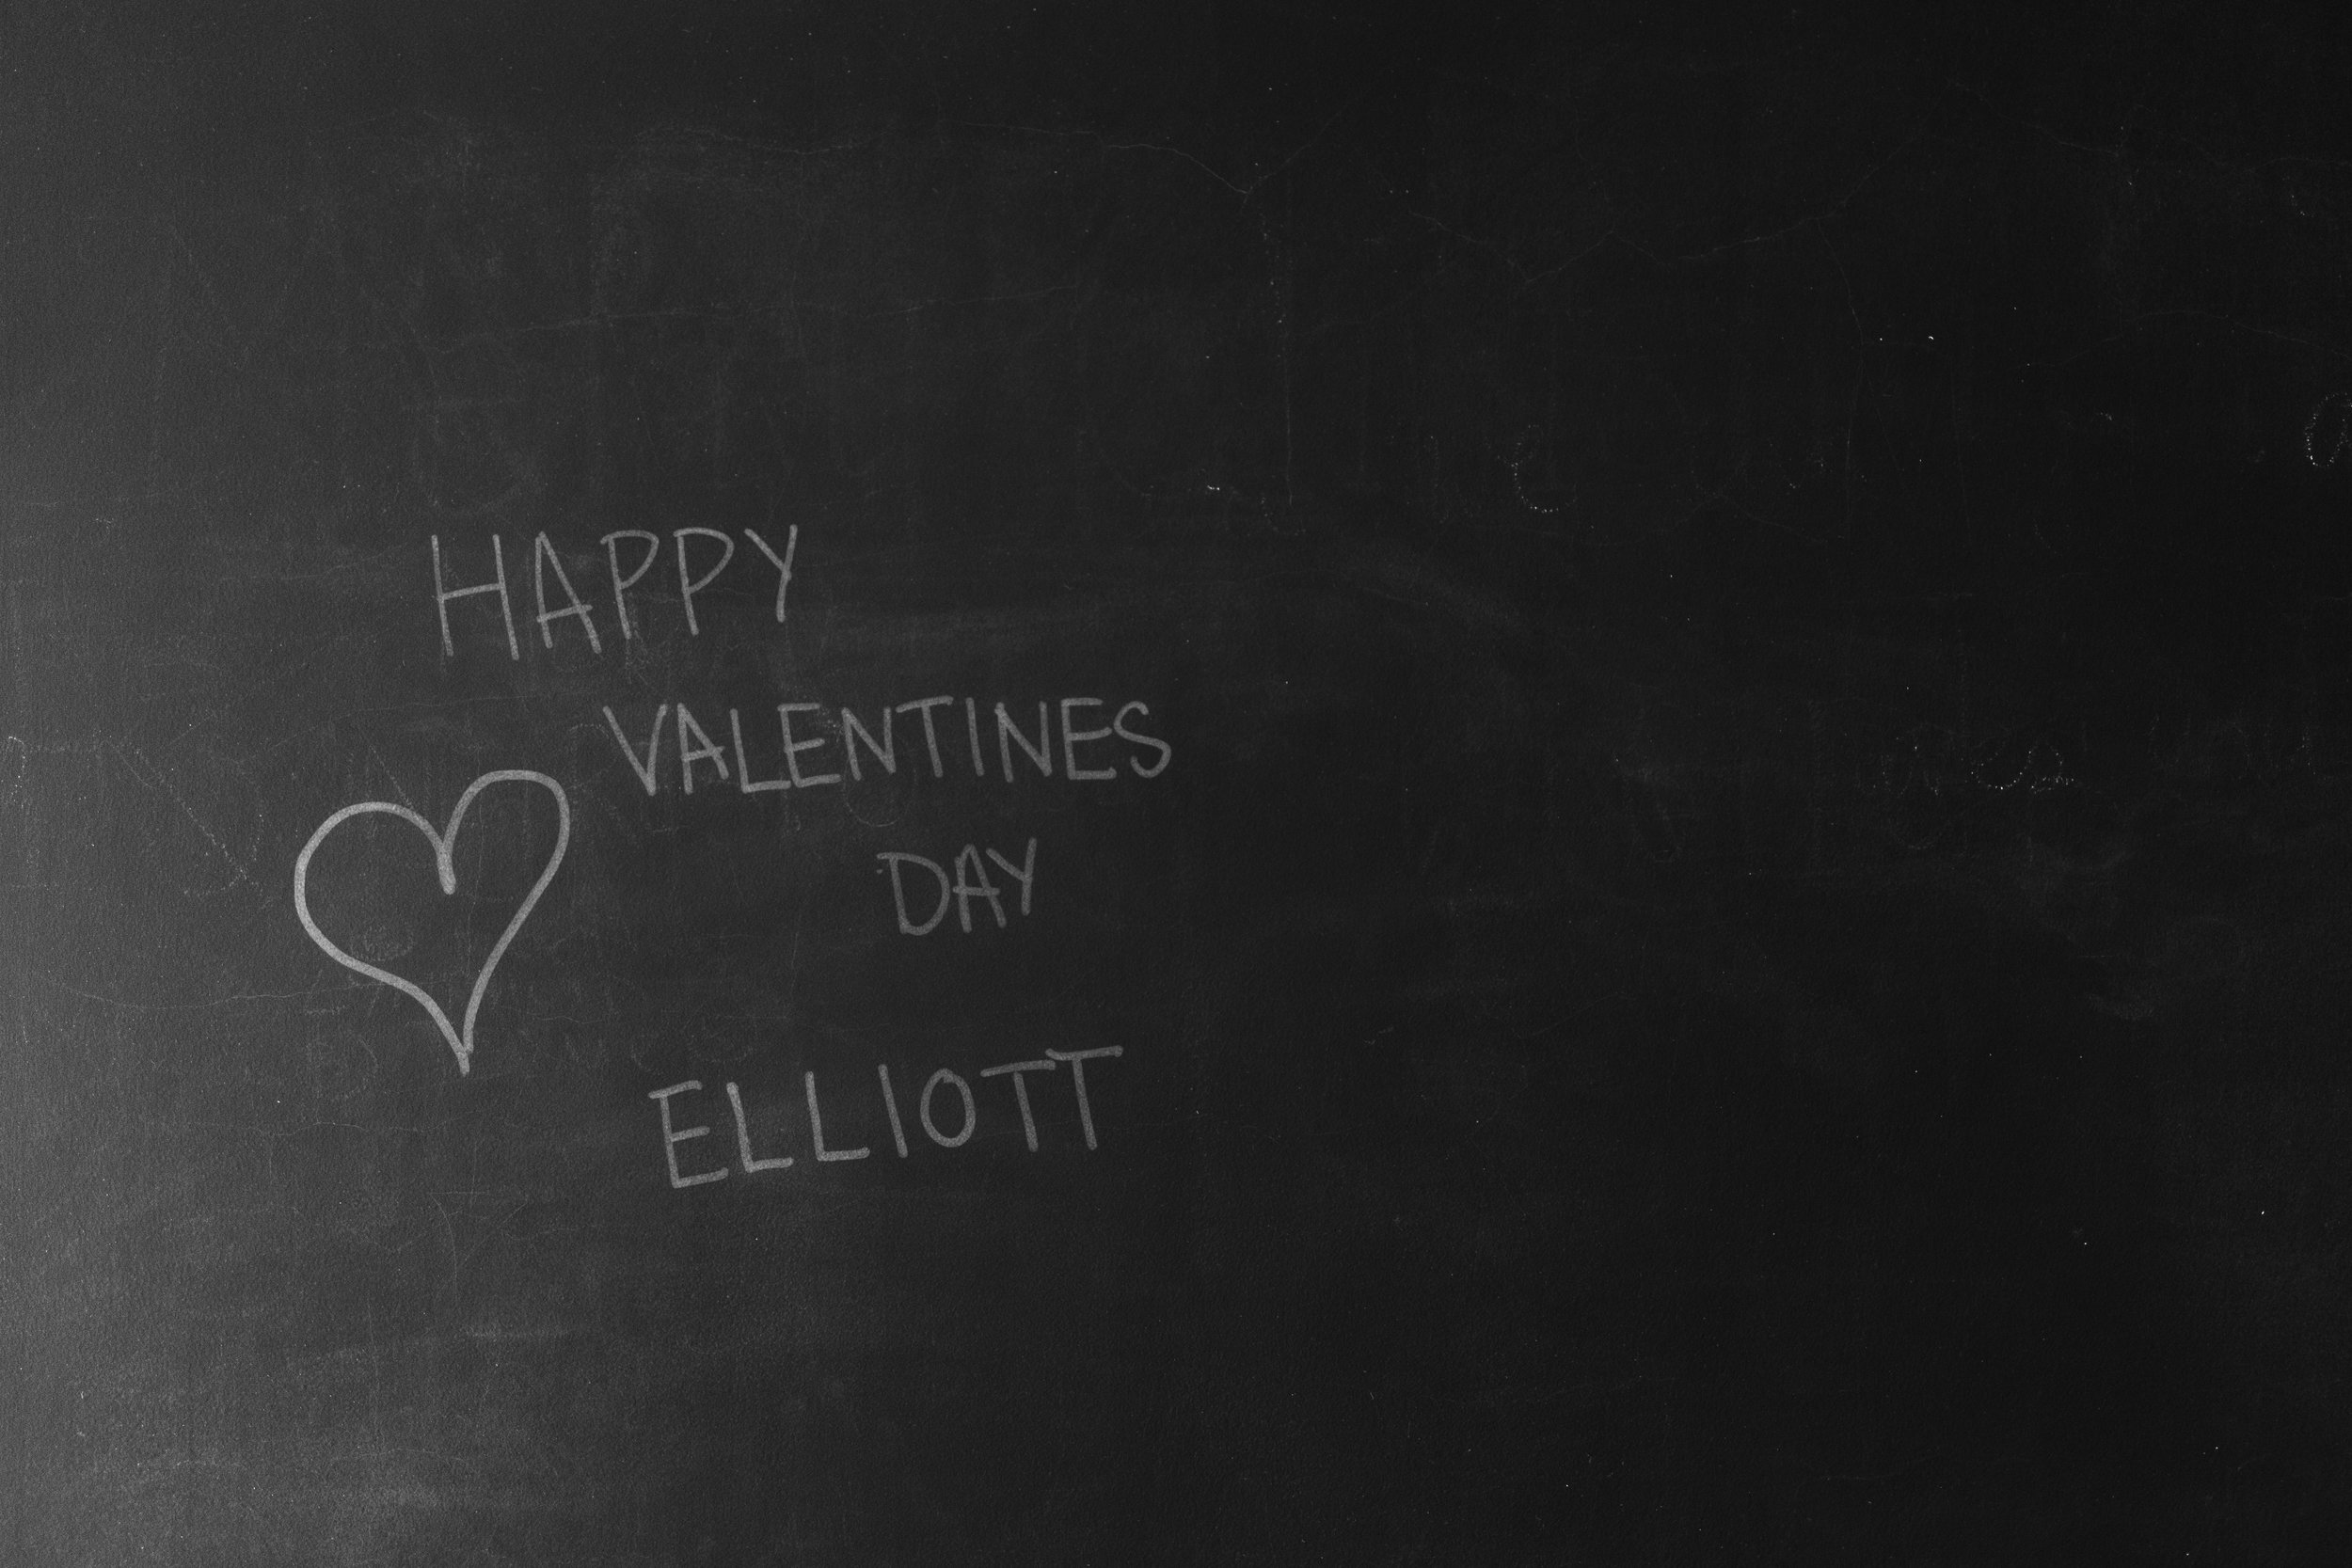 HAPPY
VALENTINES
DAY
ELLIOTT